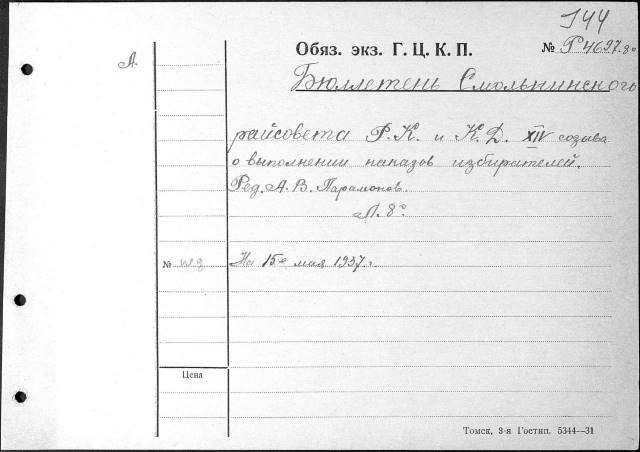 144
Обяз. экз. Г. Ц. К. П. № Р4697.8°
А.
Бюллетень Смольнинского
райсовета Р.К. и К.Д. XIV созыва
о выполнении наказов избирателей.
Ред. А. В. Парамонов.
Л. 8°.
№ На 15е мая 1937 г.
Цена
Томск, 3-я Гостип. 5344—31